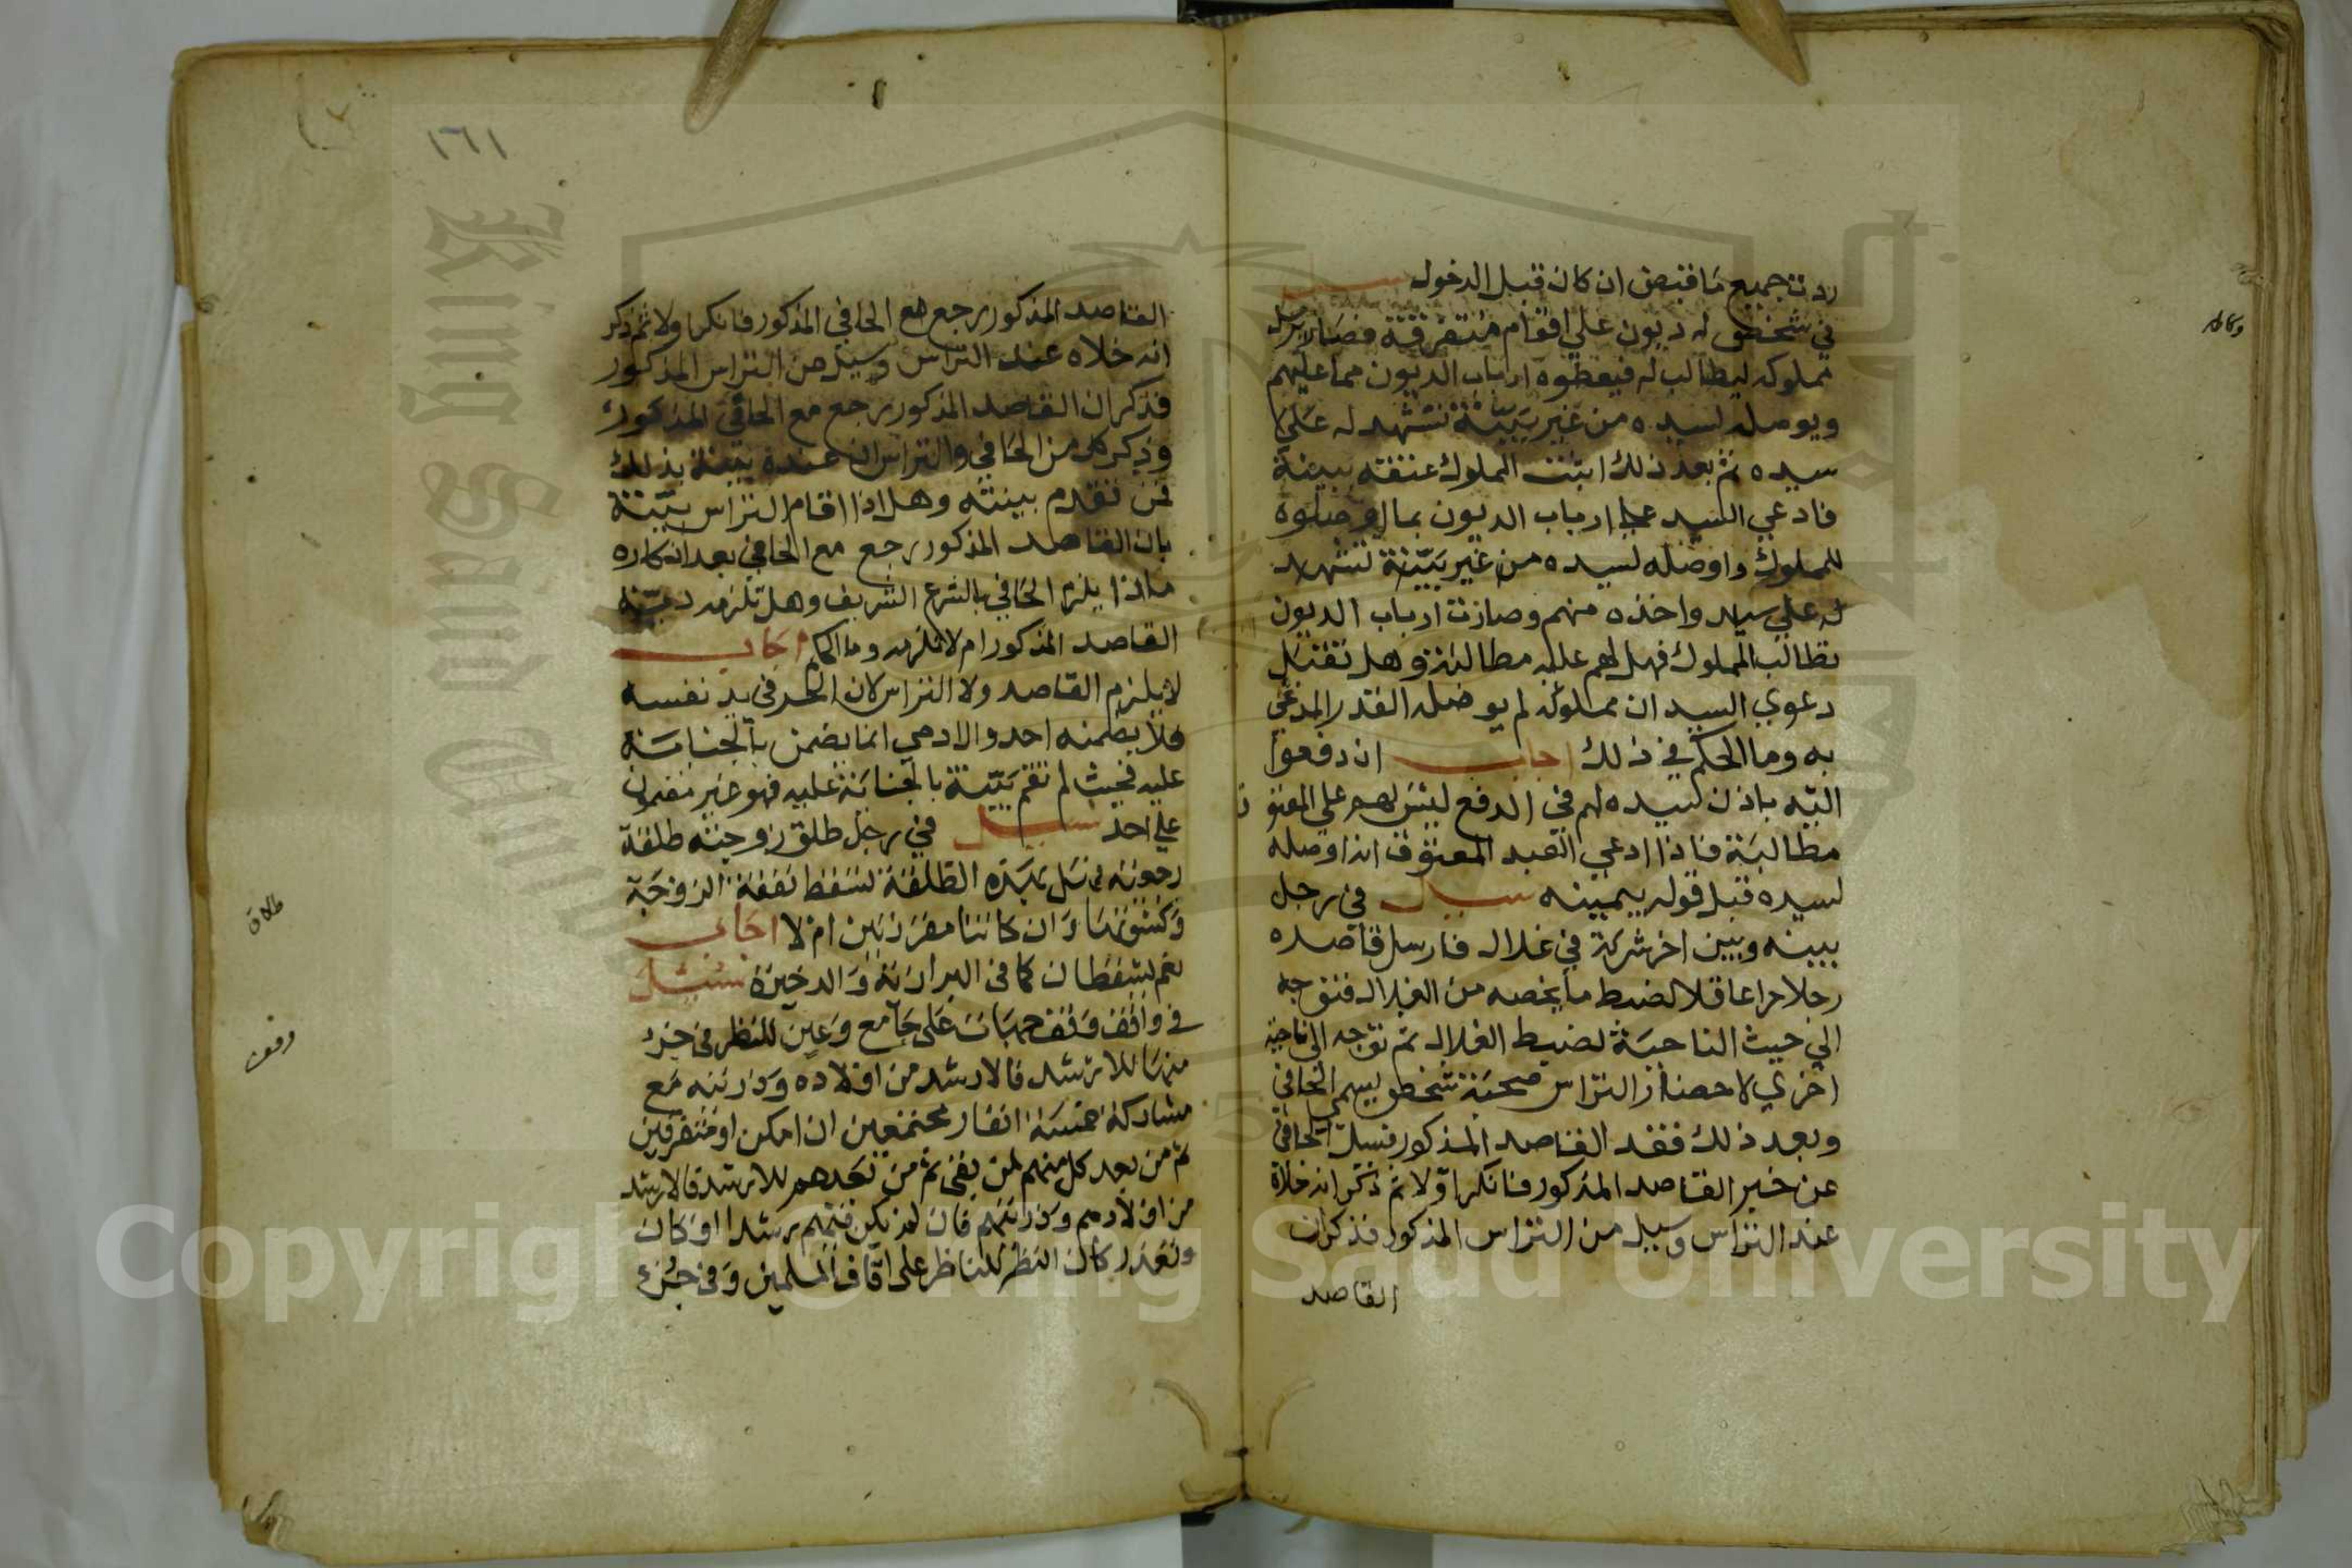 ردت جميع ما قبض ان كان قبل الدخول سيل
في شخص له ديون علي اقوام متفرقة فصار يرسل
مملوكه ليطالب له فيعطوه ارباب الديون مما عليهم
ويوصله لسيده من غير بينة تشهد له علي
سيده ثم بعد ذلك اثبت المملوك عتقه ببينة
فادعي السيد علي ارباب الديون بما اوصلوه
للمملوك واوصله لسيده من غير بينة تشهد
له علي سيده واخذه منهم وصارت ارباب الديون
تطالب المملوك فهل لهم عليه مطالبة وهل تقبل
دعوي السيد ان مملوكه لم يوصله القدر المدعي
به وما الحكم في ذلك اجاب ان دفعوا
اليه باذن سيده لهم في الدفع ليس لهم علي المعتوق
مطالبة فاذا ادعي العبد المعتوق انه اوصله
لسيده قبل قوله بيمينه سيل في رجل
بينه وبين اخر شركة في غلال فارسل قاصده
رجلا حرا عاقلا لضبط ما يخصه من الغلال فتوجه
الي حيث الناحية لضبط الغلال ثم توجه الي ناحية
اخري لاحضار التراس صحبة شخص يسمي الحافي
وبعد ذلك فقد القاصد المذكور فسيل الحافي
عن خبر القاصد المذكور فانكر اولا ثم ذكر انه خلاه
عند التراس وسيل من التراس المذكور فذكر ان
القاصد
وكاله
١٦١
القاصد المذكور رجع مع الحافي المذكور فانكر اولا ثم ذكر
انه خلاه عند التراس وسيل من التراس المذكور
فذكر ان القاصد المذكور رجع مع الحافي المذكور
وذكر كل من الحافي والتراس ان عنده بينة بذلك
فمن تقدم بينته وهل اذا اقام التراس بينة
بان القاصد المذكور رجع مع الحافي بعد انكاره
ماذا يلزم الحافي بالشرع الشريف وهل تلزمه دية
القاصد المذكور ام لا تلزمه وما الحكم اجاب
لا يلزم القاصد ولا التراس لان الحر في يد نفسه
فلا يضمنه احد والادمي انما يضمن بالجناية
عليه فحيث لم تقم بينة بالجناية عليه فهو غير مضمون
علي احد سيل في رجل طلق زوجته طلقة
رجعية فهل بهذه الطلقة تسقط نفقة الزوجة
وكسوتها وان كانتا مقررتين ام لا اجاب
نعم يسقطان كما في البزازية والذخيرة سيل
في واقف وقف جهات على جامع وعين للنظر في جزء
منها للارشد فالارشد من اولاده وذريته مع
مشاركة خمسة انفار مجتمعين ان امكن او متفرقين
ثم من بعد كل منهم لمن بقى ثم من بعدهم للارشد فالارشد
من اولادهم وذريتهم فان لم يكن فيهم رشدا او كان
وتعذر كان النظر للناظر على اوقاف المسلمين وفي جزء
طلاق
وقف